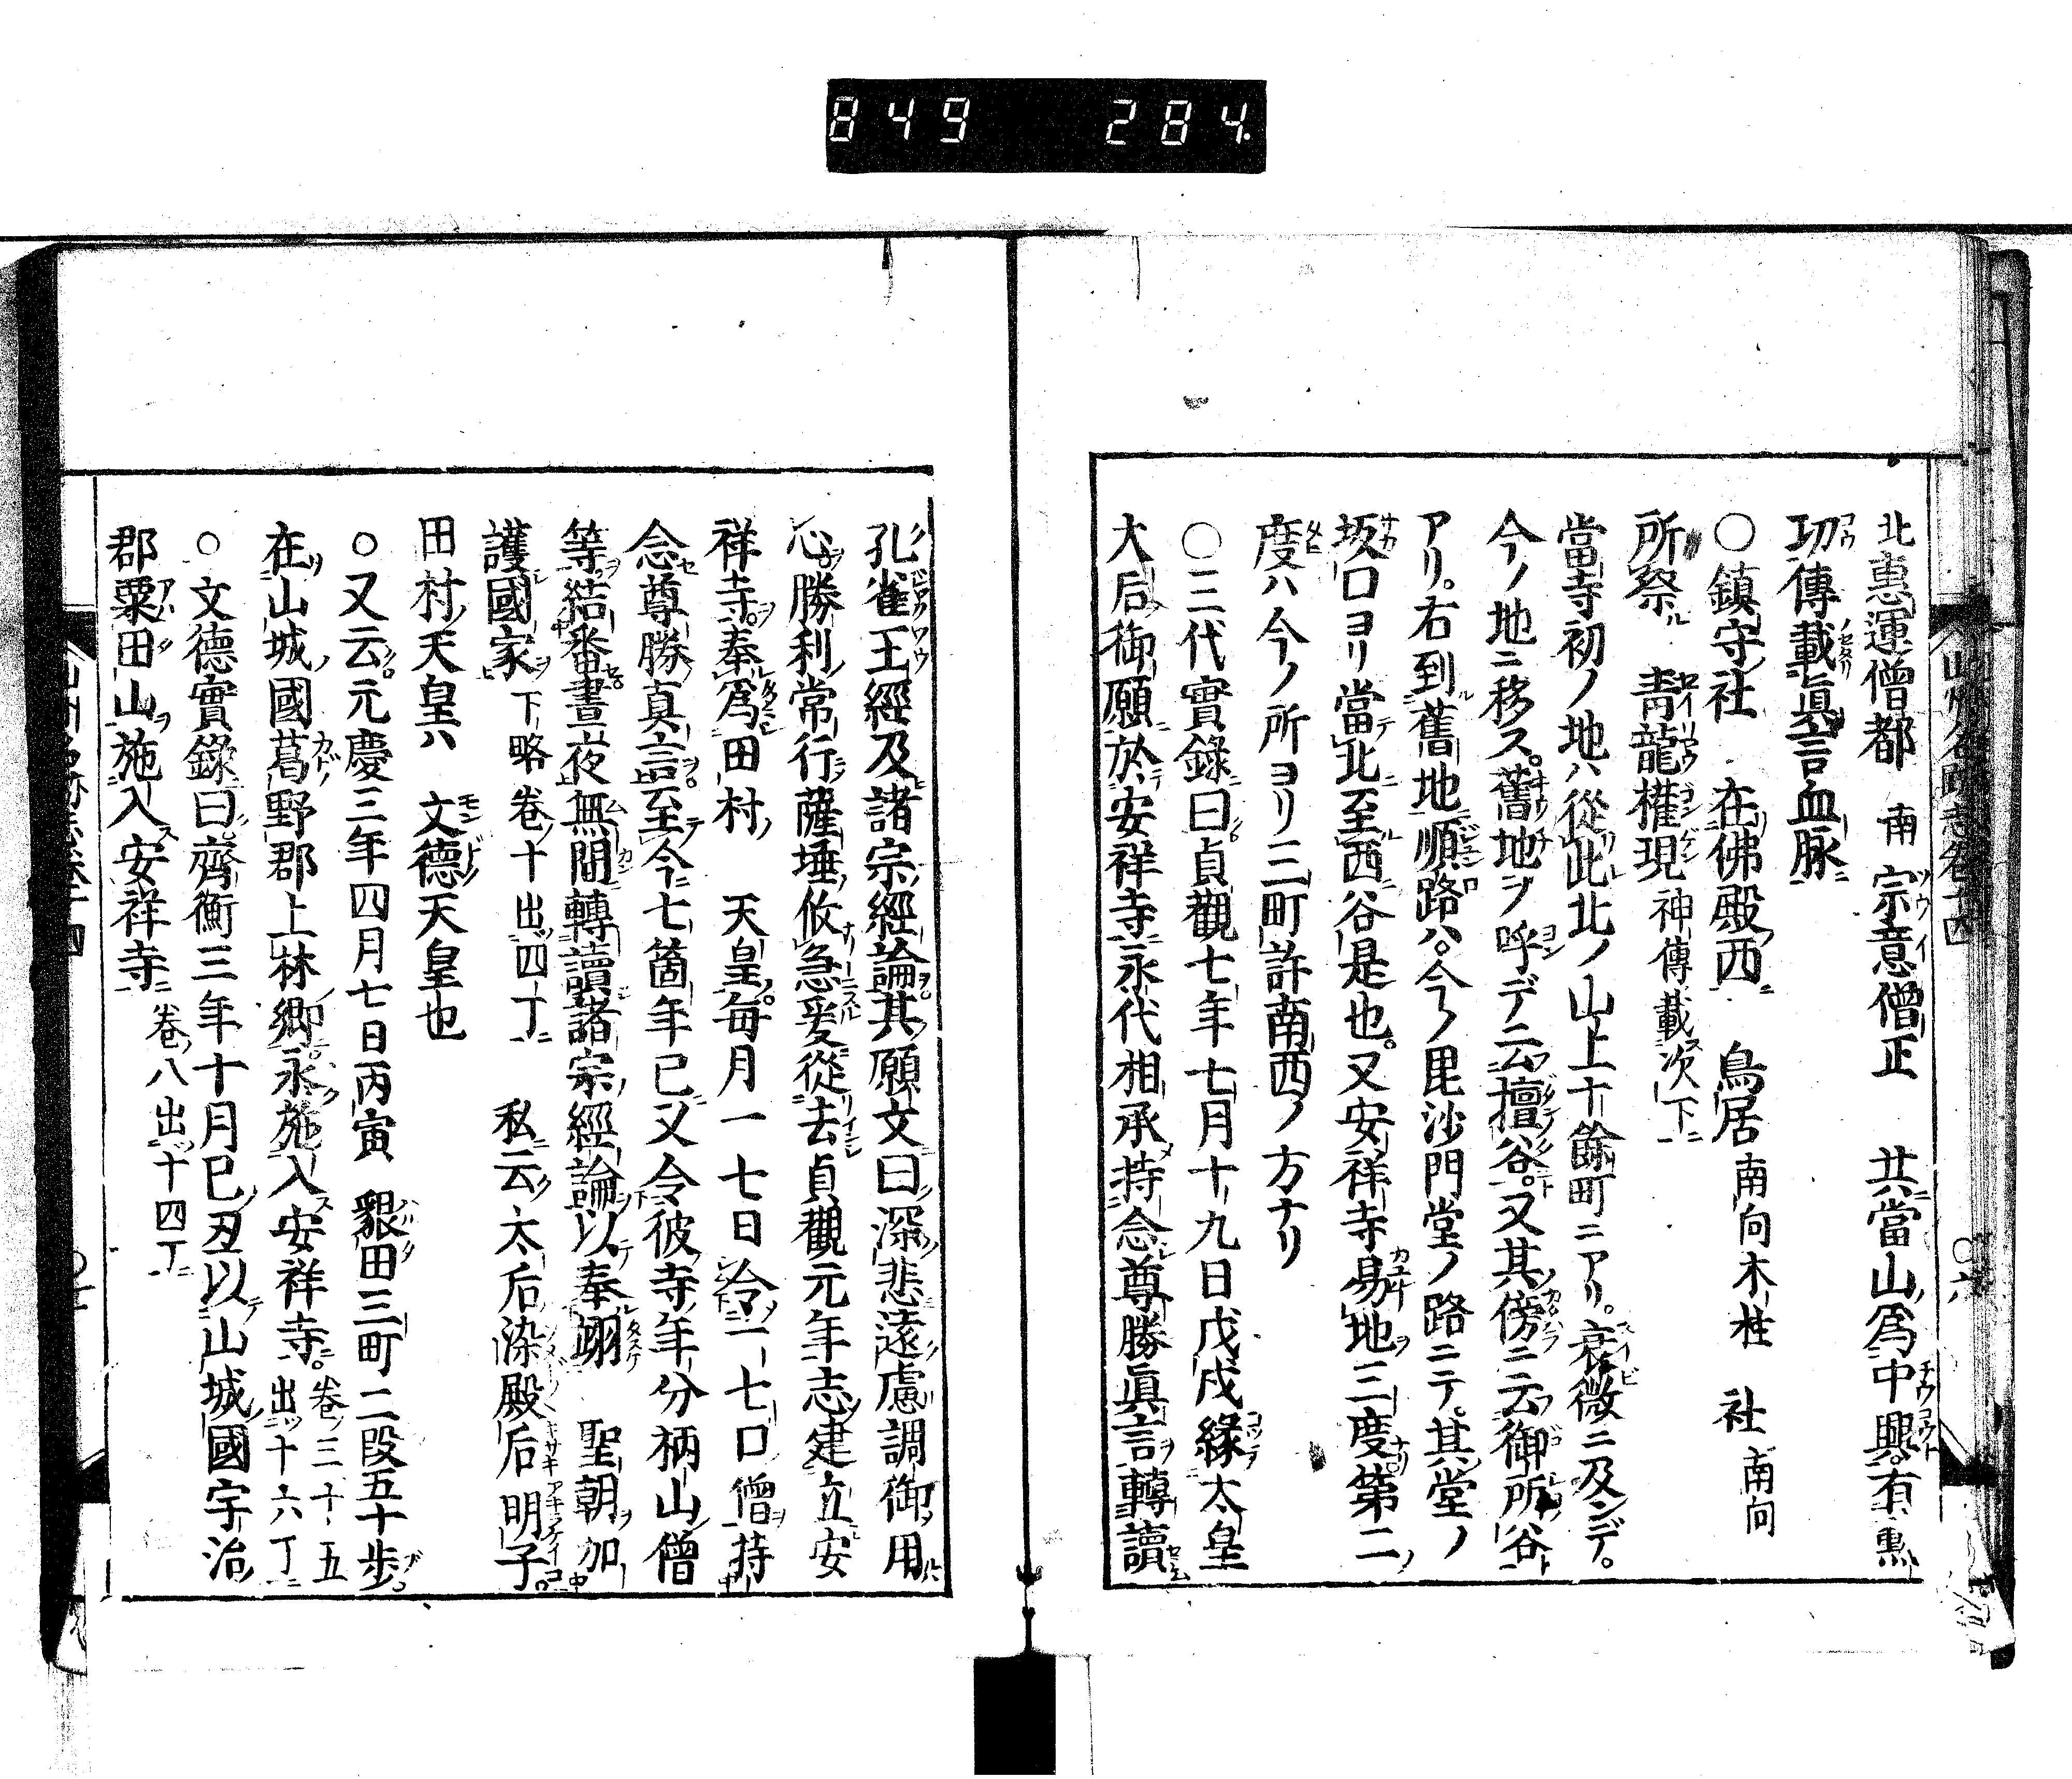 849 284
北惠運僧都 南宗意僧正 共當山爲中興有勲
功傳載眞言血脉
○鎮守社 在佛殿西 鳥居南向木柱 社南向
所祭 靑龍權現神傳載次下
當寺初ノ地ハ從此北ノ山上十餘町ニアリ。衰微ニ及ンデ。
今ノ地ニ移ス。舊地ヲ呼デ云檀谷。又其傍ニ云御所谷
アリ。右到舊地順路ハ。今ノ毘沙門堂ノ路ニテ。其堂ノ
坂口ヨリ當北至西谷是也。又安祥寺易地三度第二
度ハ今ノ所ヨリ三町許南西ノ方ナリ
○三代實錄曰貞觀七年七月十九日戊戌緣太皇
大后御願於安祥寺永代相承持念尊勝眞言轉讀
孔雀王經及諸宗經論其願文曰深悲遠慮調御用
心勝利常行薩埵攸急爰從去貞觀元年志建立安
祥寺奉爲田村 天皇每月一七日令一七口僧持
念尊勝真言至今七箇年已又令彼寺年分柄山僧
等結番晝夜無間轉讀諸宗經論以奉翊 聖朝加
護國家 下略卷十出四丁 私云太后染殿后明子。
田村天皇ハ 文德天皇也
○又云。元慶三年四月七日丙寅 墾田三町二段五十步。
在山城國葛野郡上林鄕永施入安祥寺。卷三十五出十六丁
○文德實錄曰。齊衡三年十月巳丑以山城國宇治
郡粟田山施入安祥寺 卷八出十四丁